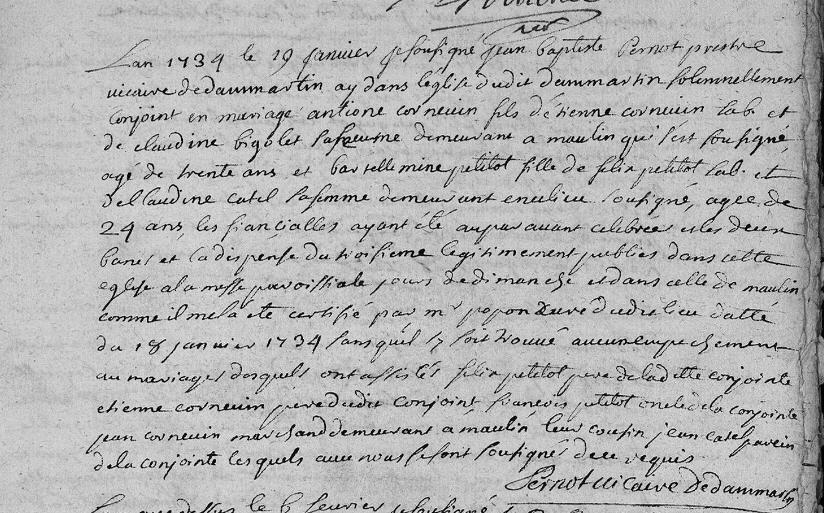 Lan 1734 le 19 janvier je sousigné jean baptiste Pernot prestre
vicaire de dammartin ay dans leglise dudit dammartin solemnellement
conjoint en mariage antione cornevin fils détienne cornevin lab et
de claudine bigolet sa femme demeurant a maulin qui s'est sousigné,
agé de trente ans et bartellemine petitot fille de felix petitot lab. et
de claudine catel sa femme demeurant en ce lieu sousigné, agee de
24 ans, les fiancialles ayant été auparavant celebrée et les deux
bancs et la dispense du troisieme legitimement publiés dans cette
eglise a la messe paroissiale jours de dimanche et dans celle de maulin
comme il m'e la été certifié par mr popon curé dudit lieu datté
du 18 janvier 1734 sans quél sy soit trouvé aucun empechement
au mariages desquels ont assistés felix petitot pere de la ditte conjointe
etienne cornevin pere dudit conjoint francois petitot oncle de la conjointe
jean cornevin marchand demeurant a maulin leur cousin jean catel parein
de la conjointe lesquels avec nous se sont sousignés de ce requis
Pernot vicaire de dammartin
le 6 fevrier